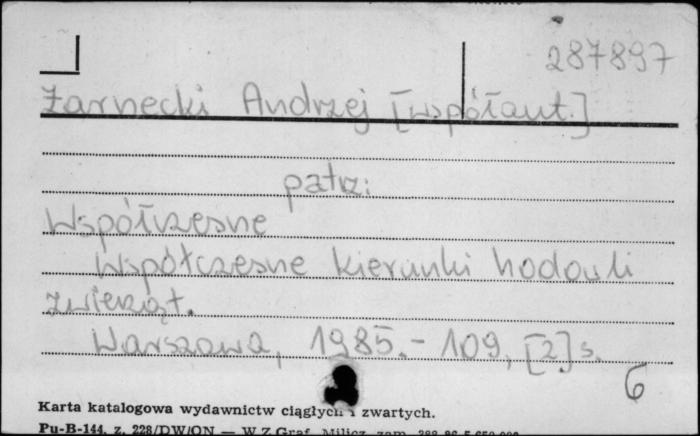 287897
Żarnecki Andrzej [współaut.]
patrz:
Współczesne
Współczesne kierunki hodowli
zwierząt.
Warszawa, 1985. - 109, [2] s.
6
Karta katalogowa wydawnictw ciągłych i zwartych.
Pu-B-144, z. 228/DW/ON — WZGraf. Milicz, zam.